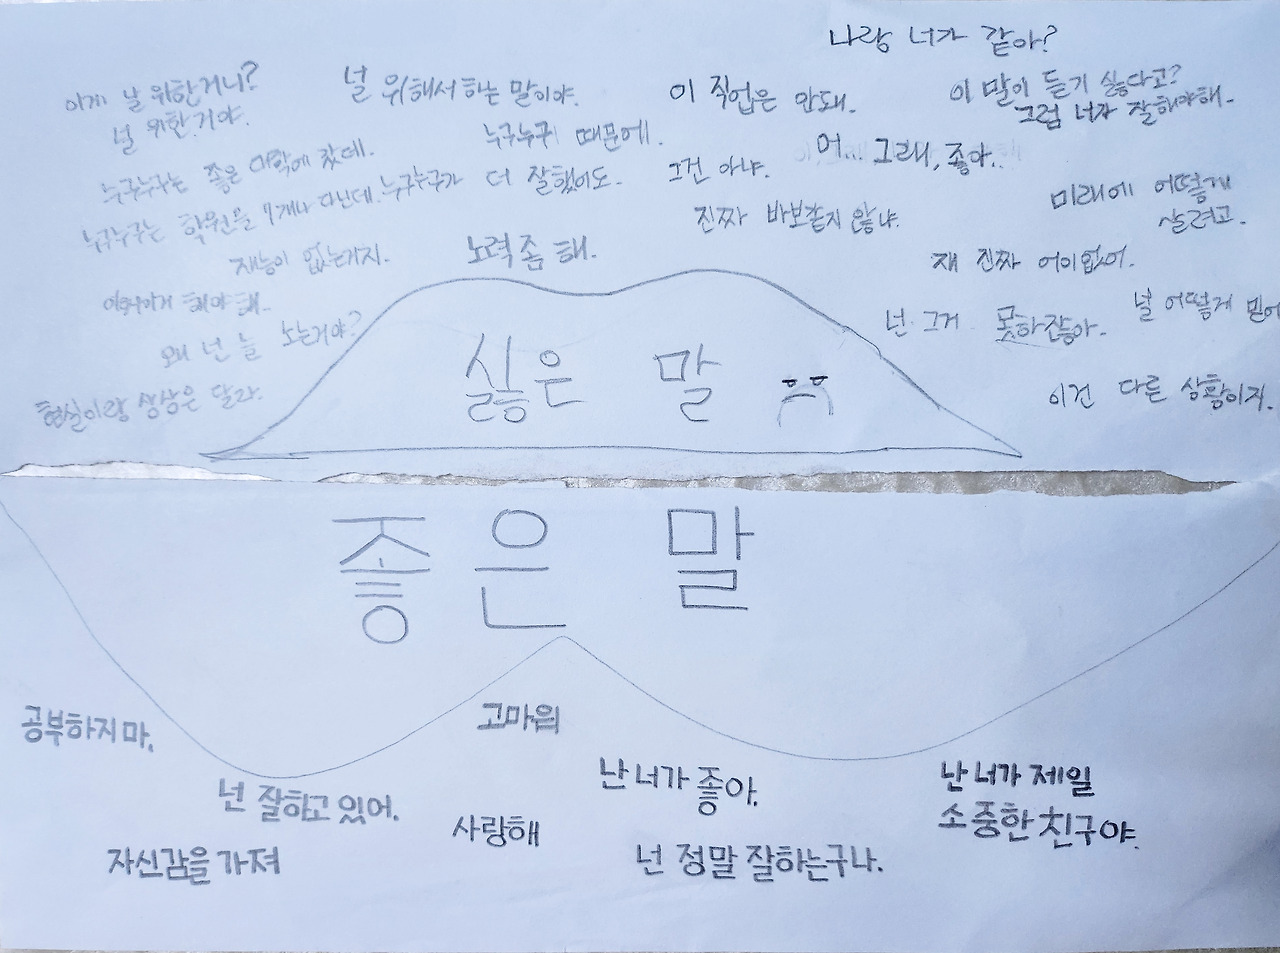 나랑 너가 같아?
이게 날 위한거니?
널 위한거야.
널 위해서 하는 말이야.
이 직업은 안돼.
이 말이 듣기 싫다고?
그럼 너가 잘해야해.
누구누구 때문에.
어... 그래, 좋아.
누구누구는 좋은 대학에 갔데.
그건 아냐.
누구누구는 학원을 7개나 다닌데.
누구누구가 더 잘했어도.
미래에 어떻게
살려고.
진짜 바보같지 않냐.
재능이 없는거지.
노력 좀 해.
쟤 진짜 어이없어.
해야 해.
넌 그거 못하잖아.
널 어떻게 믿어
왜 넌 늘 노는거야?
현실이랑 상상은 달라.
이건 다른 상황이지.
싫은 말
좋은 말
공부하지마.
고마워
넌 잘하고 있어.
난 너가 좋아.
난 너가 제일
소중한 친구야.
사랑해
자신감을 가져
넌 정말 잘하는구나.